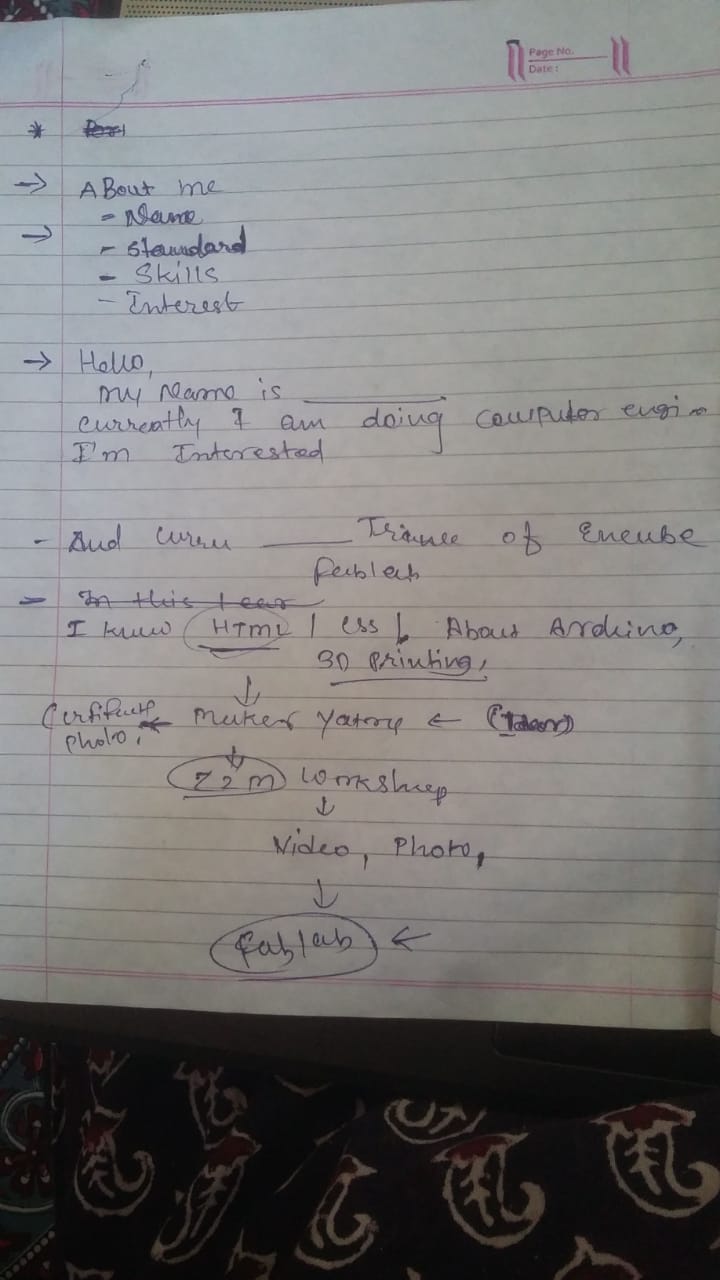 Page No.
Date:
*
→ ABout me
- Name
→ - Standard
- Skills
- Interest
→ Hello,
my Name is ______
currently I am doing computer engi
I'm Interested
- And curru ______ Trainee of Encube
fablab
- In this
I know HTML / css / About Arduino,
3D printing,
↓
Certificate photo, ← maker yatra ←
↓
workshop
↓
Video, Photo,
↓
fablab ←